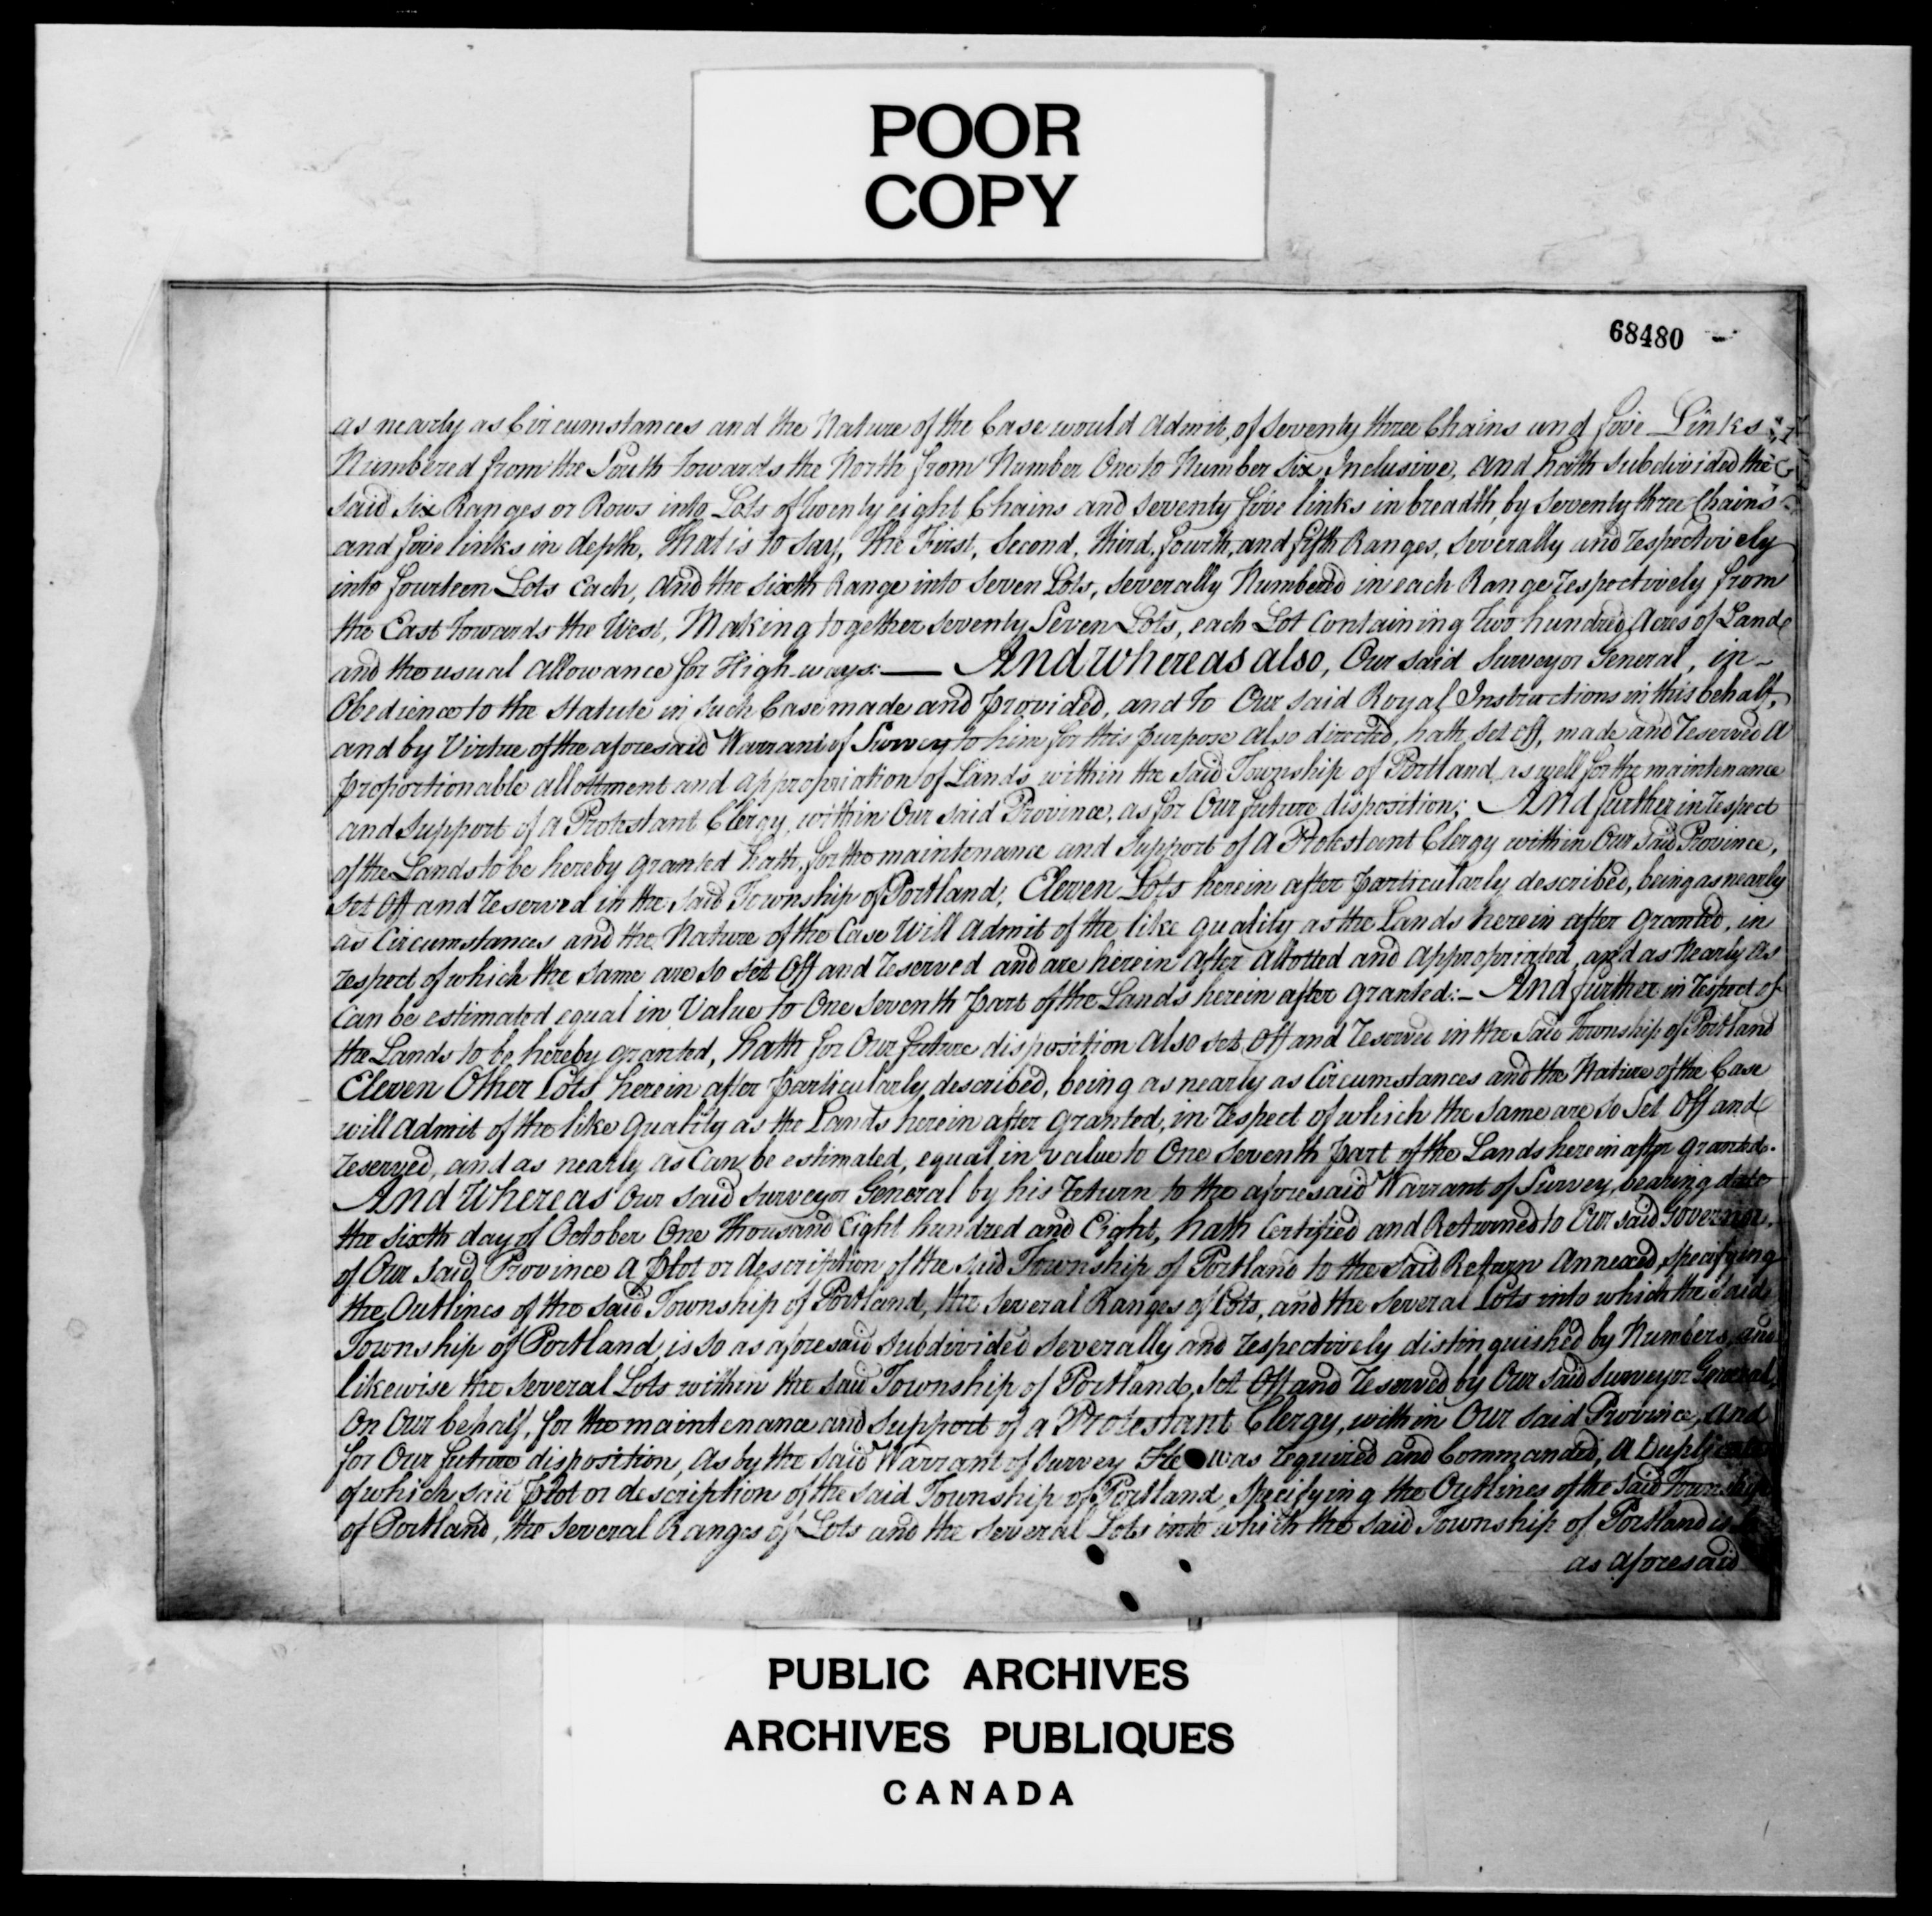 POOR
COPY
68480
as nearly as Circumstances and the Nature of the Case would Admit, of Seventy three Chains and five Links
Numbered from the South towards the North from Number One to Number Six Inclusive, and hath subdivided the
said six Ranges or Rows into Lots of twenty eight Chains and seventy five links in breadth, by seventy three Chains
and five links in depth, that is to say, the First, Second, third, fourth, and fifth Ranges, Severally and respectively
into fourteen Lots each, and the sixth Range into seven Lots, severally Numbered in each Range respectively from
the East towards the West, Making together seventy Seven Lots, each Lot Containing Two hundred Acres of Land
and the usual allowance for High-ways:— And whereas also, Our said Surveyor General, in
Obedience to the Statute in such Case made and provided, and to Our said Royal Instructions in this behalf,
and by Virtue of the aforesaid Warrant of Survey to him for this purpose also directed, hath set off, made and reserved a
proportionable allottment and appropriation of Lands within the said Township of Portland, as well for the maintenance
and support of a Protestant Clergy, within Our said Province, as for Our future disposition; And further in respect
of the Lands to be hereby granted hath, for the maintenance and support of a Protestant Clergy within Our said Province,
set off and reserved in the said Township of Portland, Eleven Lots herein after particularly described, being as nearly
as Circumstances and the Nature of the Case Will Admit of the like quality as the Lands herein after granted, in
respect of which the same are so set off and reserved and are herein after allotted and appropriated, and as Nearly as
Can be estimated equal in Value to One Seventh Part of the Lands herein after granted:— And further in respect of
the Lands to be hereby granted, hath for Our future disposition also set off and reserved in the said Township of Portland
Eleven Other Lots herein after particularly described, being as nearly as Circumstances and the Nature of the Case
will Admit of the like Quality as the Lands herein after granted, in respect of which the same are so Set Off and
reserved, and as nearly as Can be estimated, equal in value to One Seventh part of the Lands herein after granted.
And Whereas our said Surveyor General by his return to the aforesaid Warrant of Survey, bearing date
the sixth day of October One thousand Eight hundred and Eight, hath Certified and Returned to Our said Governor
of Our said Province a plot or description of the said Township of Portland to the said Return Annexed, specifying
the Outlines of the said Township of Portland, the several Ranges of Lots, and the several Lots into which the said
Township of Portland is so as aforesaid subdivided severally and respectively distinguished by Numbers, and
likewise the several Lots within the said Township of Portland, set off and reserved by Our said Surveyor General,
On Our behalf, for the maintenance and support of a Protestant Clergy, within Our said Province, and
for Our future disposition, As by the said Warrant of Survey He was required and Commanded, A Duplicate
of which said Plot or description of the said Township of Portland, specifying the Outlines of the said Township
of Portland, the several Ranges of Lots and the several Lots into which the said Township of Portland is
as aforesaid
PUBLIC ARCHIVES
ARCHIVES PUBLIQUES
CANADA